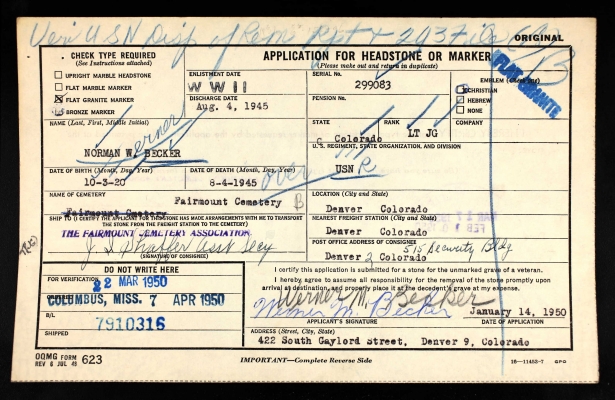 Veri USN Disp. of Rem Rpt + 293 File
ORIGINAL
CHECK TYPE REQUIRED
(See Instructions attached)
APPLICATION FOR HEADSTONE OR MARKER
(Please make out and return in duplicate)
UPRIGHT MARBLE HEADSTONE
FLAT MARBLE MARKER
X FLAT GRANITE MARKER
BRONZE MARKER
ENLISTMENT DATE
W W II
DISCHARGE DATE
Aug. 4, 1945
SERIAL No.
299083
PENSION No.
EMBLEM (Check one)
CHRISTIAN
HEBREW
NONE
FLAT GRANITE
B
STATE
Colorado
RANK
LT JG
COMPANY
NAME (Last, First, Middle Initial)
NORMAN W. BECKER
U. S. REGIMENT, STATE ORGANIZATION, AND DIVISION
USN R
over
DATE OF BIRTH (Month, Day, Year)
10-3-20
DATE OF DEATH (Month, Day, Year)
8-4-1945
NAME OF CEMETERY
Fairmount Cemetery B
Fairmount Cemetery
LOCATION (City and State)
Denver Colorado
SHIP TO (I CERTIFY THE APPLICANT FOR THIS STONE HAS MADE ARRANGEMENTS WITH ME TO TRANSPORT
THE STONE FROM THE FREIGHT STATION TO THE CEMETERY)
THE FAIRMOUNT CEMETERY ASSOCIATION
J. S. Shaffer Asst Secy
(SIGNATURE OF CONSIGNEE)
NEAREST FREIGHT STATION (City and State)
Denver Colorado
POST OFFICE ADDRESS OF CONSIGNEE
515 Security Bldg
Denver 2 Colorado
DO NOT WRITE HERE
FOR VERIFICATION
22 MAR 1950
COLUMBUS, MISS. 7 APR 1950
B/L
7910316
SHIPPED
I certify this application is submitted for a stone for the unmarked grave of a veteran.
I hereby agree to assume all responsibility for the removal of the stone promptly upon
arrival at destination, and properly place it at the decedent's grave at my expense.
Werner M. Becker
Werner M. Becker
January 14, 1950
APPLICANT'S SIGNATURE
DATE OF APPLICATION
ADDRESS (Street, City, State)
422 South Gaylord Street, Denver 9, Colorado
OQMG FORM
REV 6 JUL 45
623
IMPORTANT—Complete Reverse Side
16—11453-7 GPO